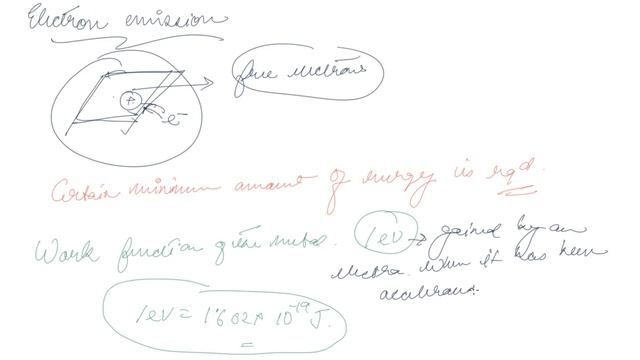 Electron emission
free electrons
+
e⁻
Certain minimum amount of energy is rqd.
Work function of the metal.
1ev → gained by an
electron when it has been
accelerated.
1ev = 1.602 × 10⁻¹⁹ J.